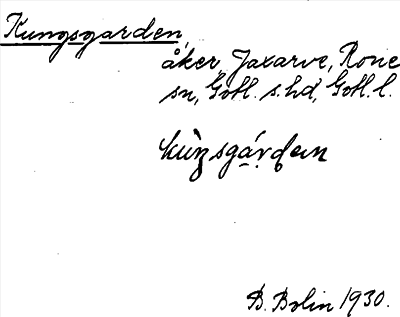 Kungsgarden,
åker, Jaxarve, Rone
sn, Gotl. s. hd, Gotl. l.
kuŋ̀sgá̤rḍen
B. Bolin 1930.